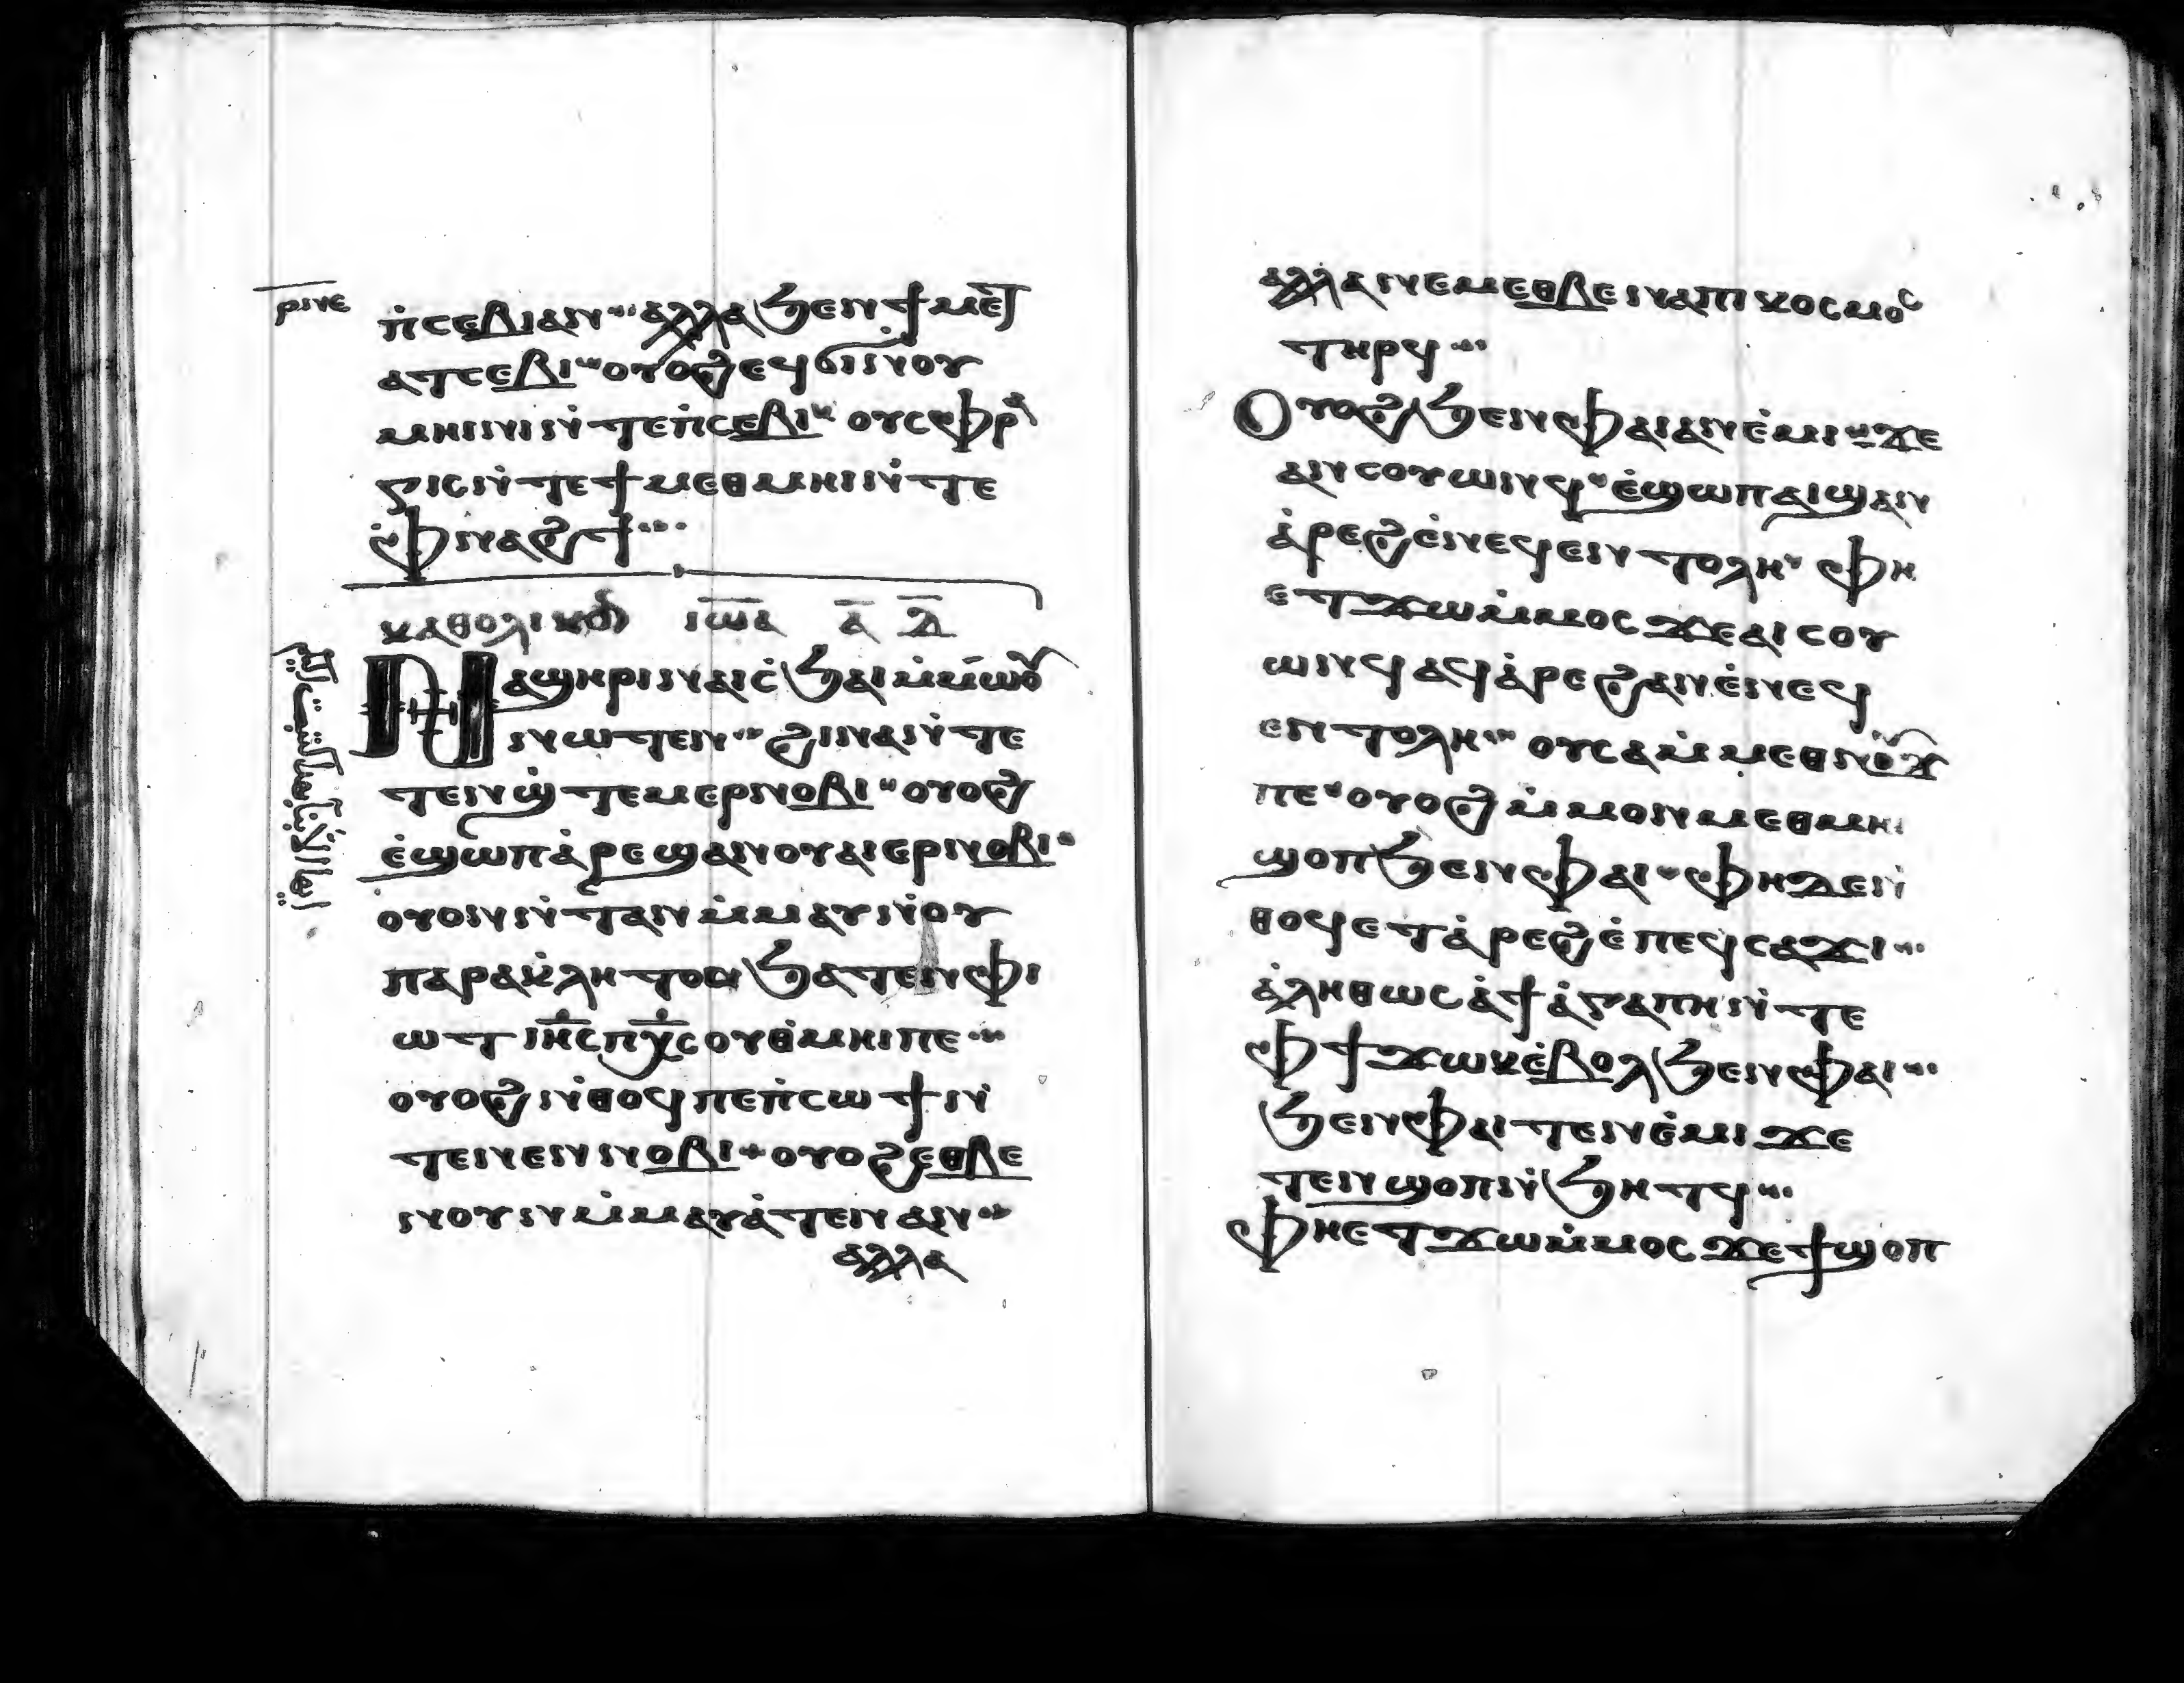 ⲣⲛⲉ
ⲡ̀ⲥⲉⲃⲓⲁⲛ ⲁⲗⲗⲁϧⲉⲛϯⲙⲉⲧ
ⲁⲧⲥⲉⲃⲓ ⲟⲩⲟϩⲉϥϭⲓⲛⲟⲩ
ⲙⲏⲓⲛⲓⲛ̀ⲧⲉⲡ̀ⲥⲉⲃⲓ ⲟⲩⲥⲫⲣⲁ
ⲅⲓⲥⲛ̀ⲧⲉϯⲙⲉⲑⲙⲏⲓⲛ̀ⲧⲉ
ⲫ̀ⲛⲁϩϯ
ⲕⲁⲑⲟⲗⲓⲕⲟⲛ ⲓⲱⲁ ⲁ̅ ⲇ̅
ⲛⲁϣⲏⲣⲓⲛⲁⲓⲥ̀ϧⲁⲓⲙ̀ⲙⲱⲟⲩ
ⲛⲱⲧⲉⲛ ϩⲓⲛⲁⲛ̀ⲧⲉ
ⲧⲉⲛϣ̀ⲧⲉⲙⲉⲣⲛⲟⲃⲓ ⲟⲩⲟϩ
ⲉ̀ϣⲱⲡⲁ̀ⲣⲉϣⲁⲛⲟⲩⲁⲓⲉⲣⲛⲟⲃⲓ
ⲟⲩⲟⲛⲛ̀ⲧⲁⲛⲙ̀ⲙⲁⲩⲛ̀ⲟⲩ
ⲡⲁⲣⲁⲕ̀ⲗⲏⲧⲟⲛϧⲁⲧⲉⲛⲫⲓ
ⲱⲧ ⲓⲏⲥⲡⲭⲥⲟⲩⲑ̀ⲙⲏⲓⲡⲉ
ⲟⲩⲟϩⲛ̀ⲑⲟϥⲡⲉⲡ̀ⲥⲱϯⲛ̀
ⲧⲉⲛⲉⲛⲛⲟⲃⲓ ⲟⲩⲟϩⲉⲑⲃⲉ
ⲛⲟⲩⲛⲙ̀ⲙⲁⲩⲁ̀ⲧⲉⲛⲁⲛ
ⲁⲗⲗⲁ
ⲁⲗⲗⲁⲛⲉⲙⲉⲑⲃⲉⲛⲁⲡⲓⲕⲟⲥⲙⲟⲥ
ⲧⲏⲣϥ
ⲟⲩⲟϩϧⲉⲛⲫⲁⲓⲁⲛⲉ̀ⲙⲓ ϫⲉ
ⲁⲛⲥⲟⲩⲱⲛϥ ⲉ̀ϣⲱⲡⲁⲓϣⲁⲛ
ⲁ̀ⲣⲉϩⲉ̀ⲛⲉϥⲉⲛⲧⲟⲗⲏ ⲫⲏ
ⲉⲧϫⲱⲙ̀ⲙⲟⲥ ϫⲉⲁⲓⲥⲟⲩ
ⲱⲛϥⲁϥⲁ̀ⲣⲉϩⲁⲛⲉ̀ⲛⲉϥ
ⲉⲛⲧⲟⲗⲏ ⲟⲩⲥⲁⲙ̀ⲙⲉⲑⲛⲟⲩϫ
ⲡⲉ ⲟⲩⲟϩⲙ̀ⲙⲟⲛⲙⲉⲑⲙⲏⲓ
ϣⲟⲡϧⲉⲛⲫⲁⲓ ⲫⲏⲇⲉⲛ̀
ⲑⲟϥⲉⲧⲁ̀ⲣⲉϩⲉ̀ⲡⲉϥⲥⲁϫⲓ
ⲁ̀ⲗⲏⲑⲱⲥⲁ̀ϯⲁ̀ⲅⲁⲡⲏⲛ̀ⲧⲉ
ⲫϯϫⲱⲕⲉ̀ⲃⲟⲗϧⲉⲛⲫⲁⲓ
ϧⲉⲛⲫⲁⲓⲧⲉⲛⲉ̀ⲙⲓ ϫⲉ
ⲧⲉⲛϣⲟⲡⲛ̀ϧⲏⲧϥ
ⲫⲏⲉⲧϫⲱⲙ̀ⲙⲟⲥ ϫⲉϯϣⲟⲡ